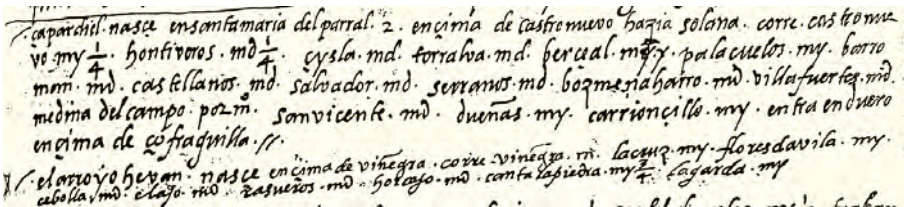 çapardiel. nasce ensantamaria del parral. 2. ençima de castronuevo hazia solana. corre. castronue
vo. my 1/4. hontiveros. md 1/4. çysla. md. torralva. md. berçial. palaçuelos. my. barro
man. md. castellanos. md. salvador. md. serranos. md. villafuertes. md.
medina del campo. por m. san vicente. md. dueñas. my. carrionçillo. my. entra en duero
ençima de
el arroyo hevan. nasce ençima de viñegra. corre. viñegra. m. la cruz. my. flores davila. my.
cebolla. md. el ajo. md. rasueros. md. horcajo. md. canta la piedra. my 2/4. lagarda. my